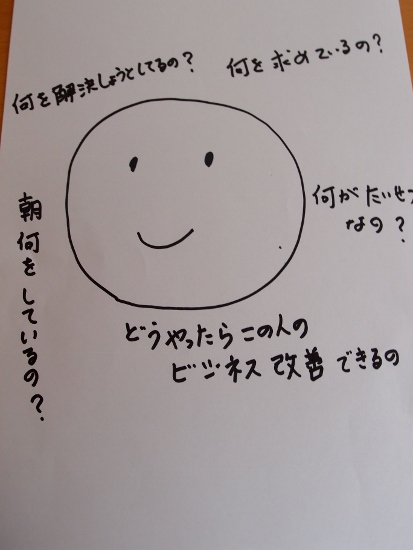 何を解決しようとしてるの？
何を求めているの？
何がたいせつ
なの？
朝何をしているの？
どうやったらこの人の
ビジネス改善できるの